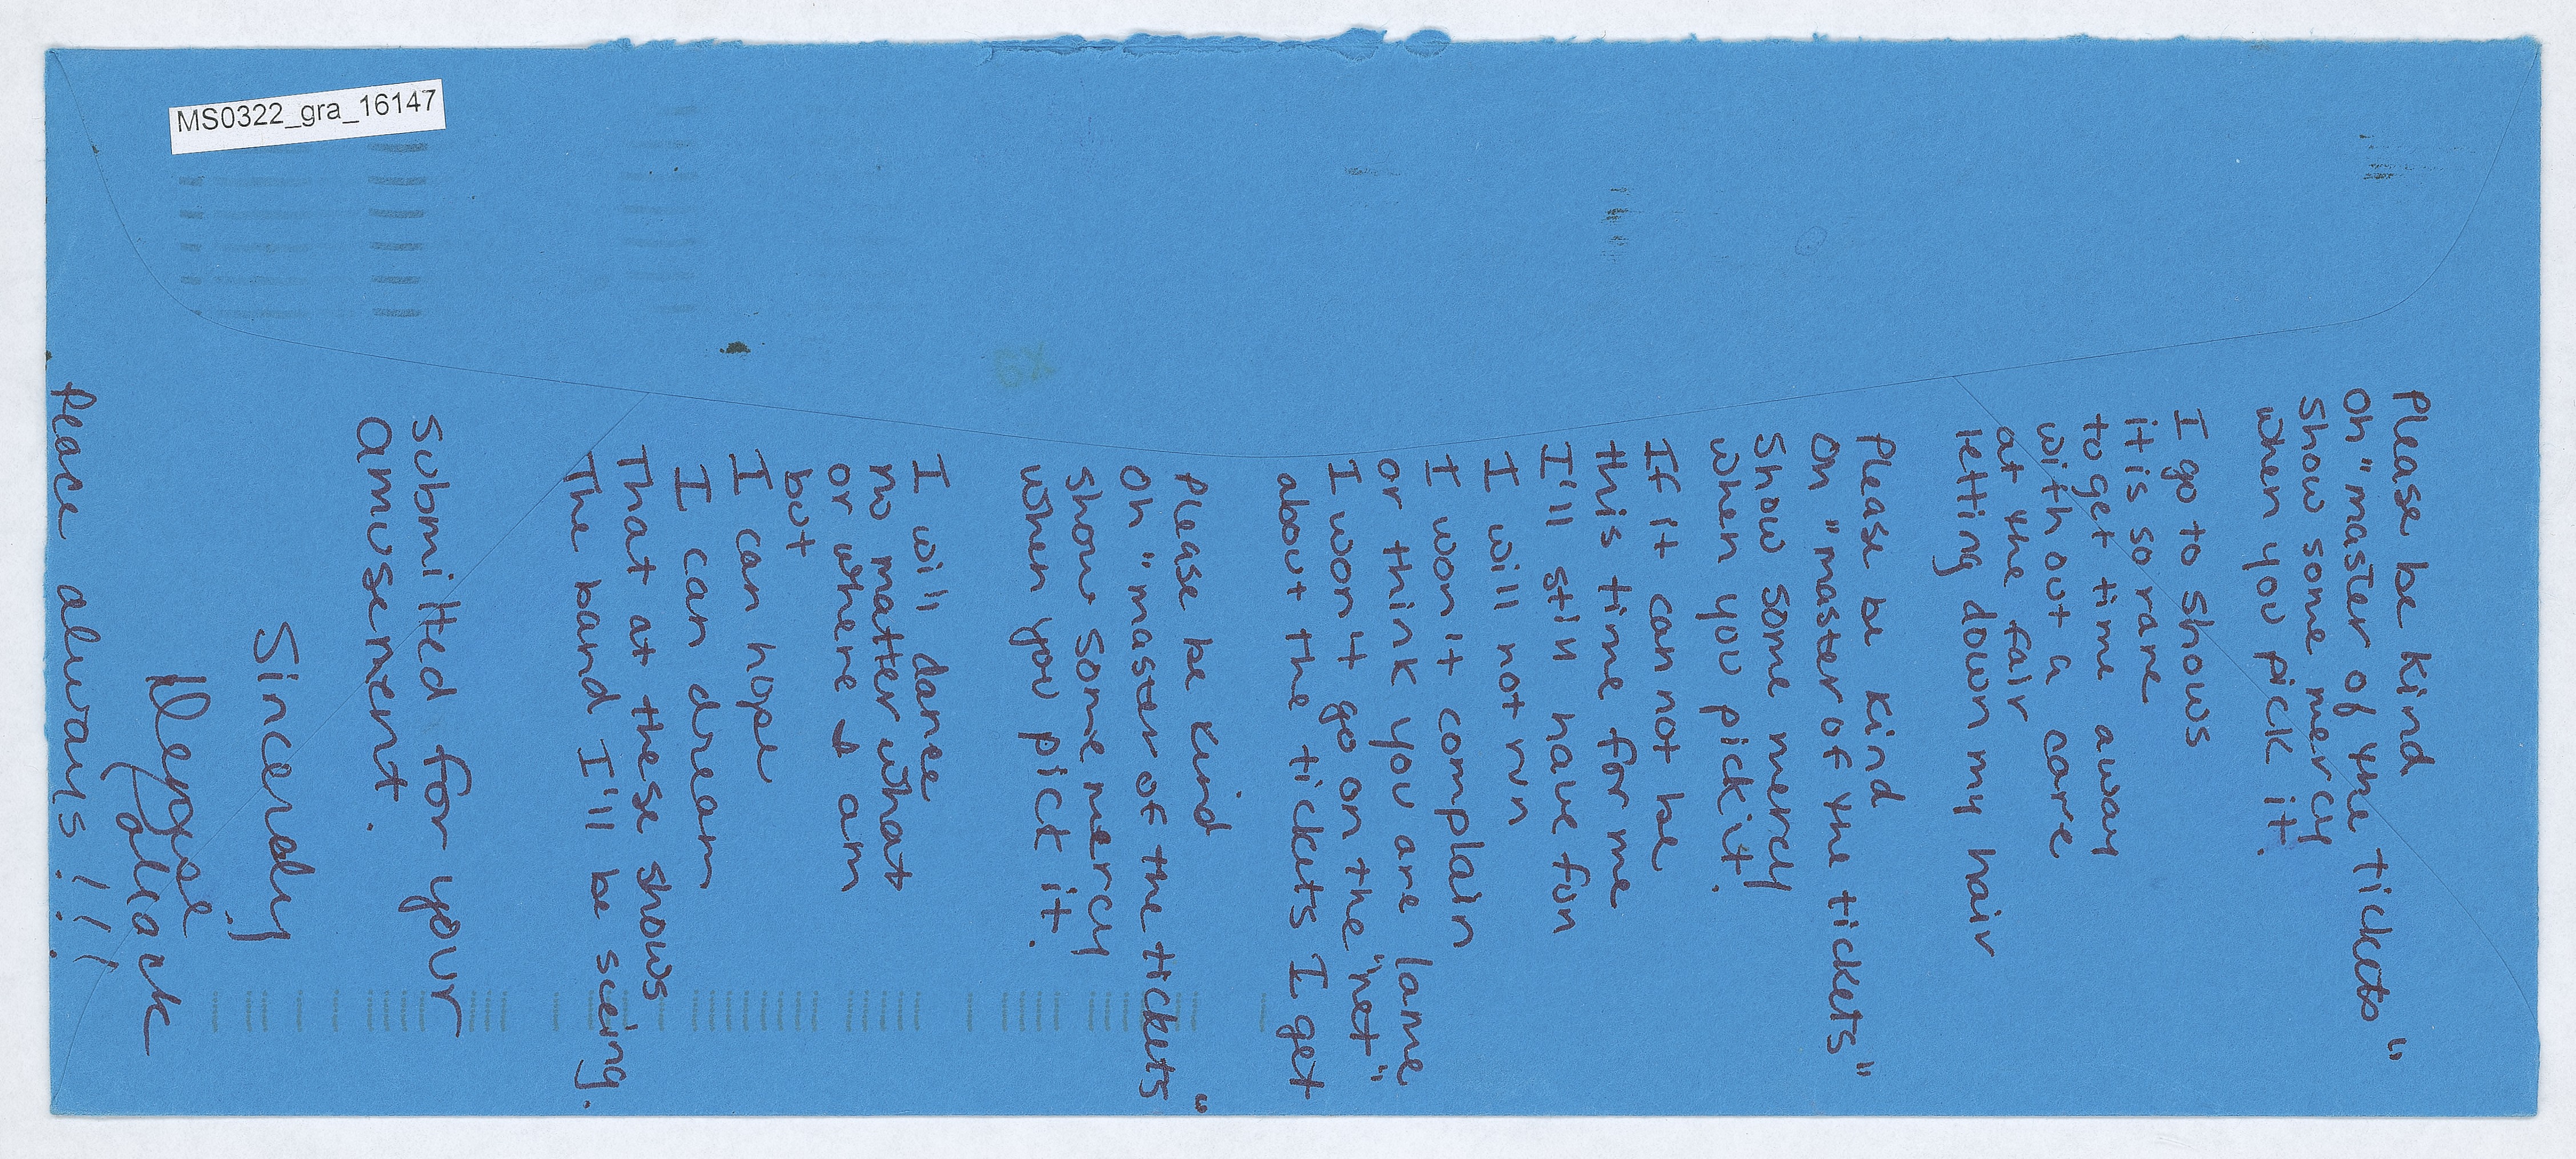 MS0322_gra_16147
Please be kind
Oh "master of the tickets"
Show some mercy
when you pick it.
I go to shows
it is so rare
to get time away
with out a care
at the fair
letting down my hair
Please be kind
Oh "master of the tickets"
Show some mercy
When you pick it.
If it can not be
this time for me
I'll still have fun
I will not run
I won't complain
or think you are lame
I won't go on the "net"
about the tickets I get
Please be kind
Oh "master of the tickets"
Show some mercy
When you pick it.
I will dance
no matter what
or where I am
but
I can hope
I can dream
That at these shows
The band I'll be seeing.
Submitted for your
amusement.
Sincerely,
Peace always!!!